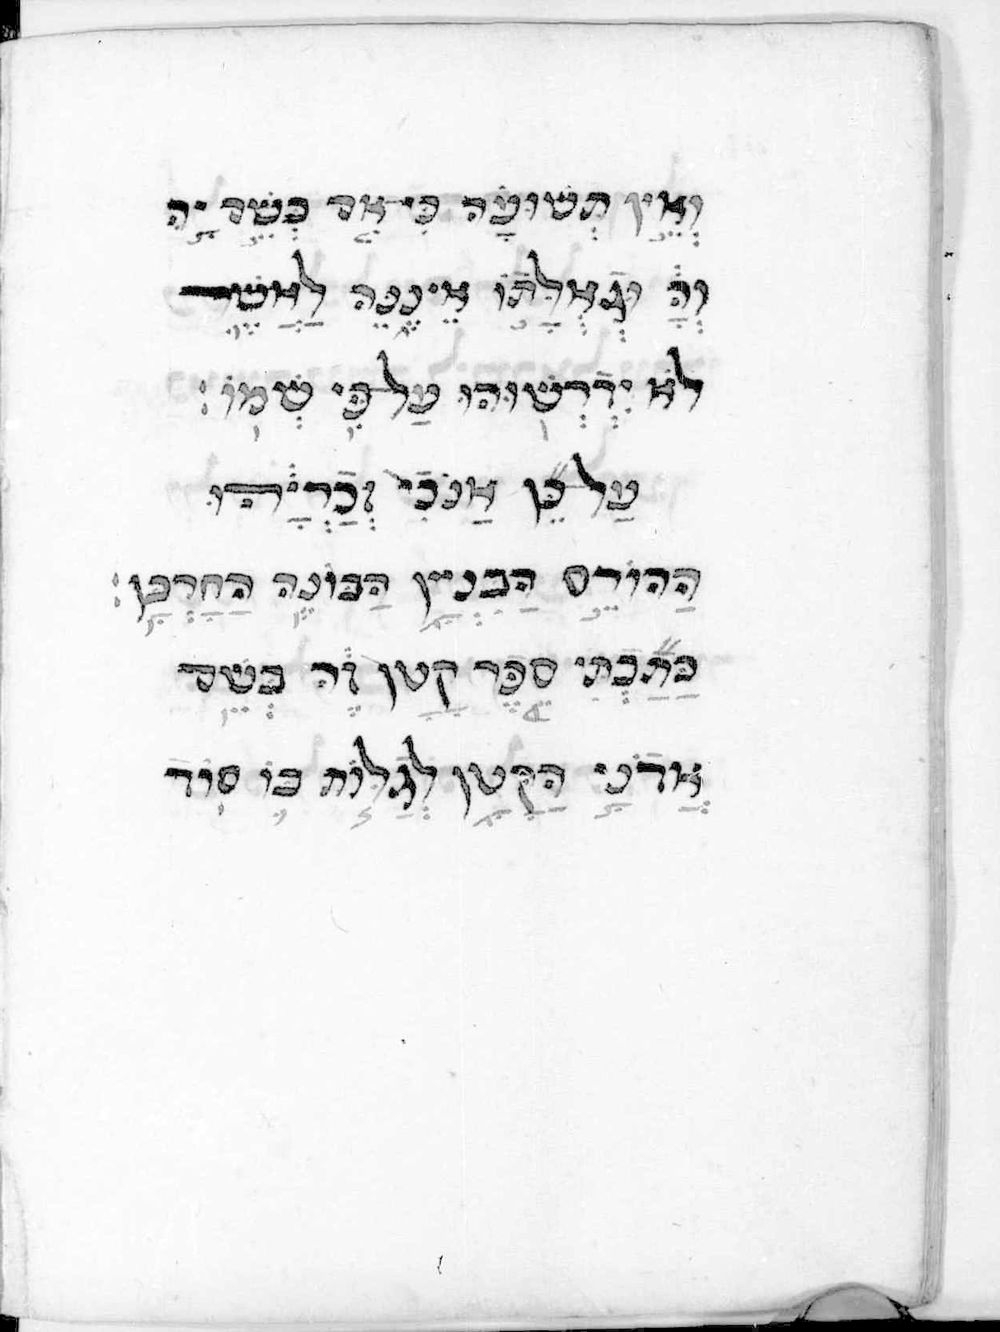 וְאֵין תְּשׁוּעָה כִּי אִם בְּשֵׁם יַה
וָה וּגְאֻלָּתוֹ אֵינֶנָּה לַאֲשֶׁר
לֹא יִדְרְשׁוּהוּ עַל פִּי שְׁמוֹ׃
עַל כֵּן אַנֹכִי זְכַרְיָהוּ
הַהוֹרֵס הַבִנְיָן הַבּוֹנֶה הַחַרְבָּן׃
כָּתַבְתִּי סֵפֶר קָטָן זֶה בְּשֵׁם
אֲדֹנָי הַקָּטָן לְגַלּוֹת בּוֹ סוֹד